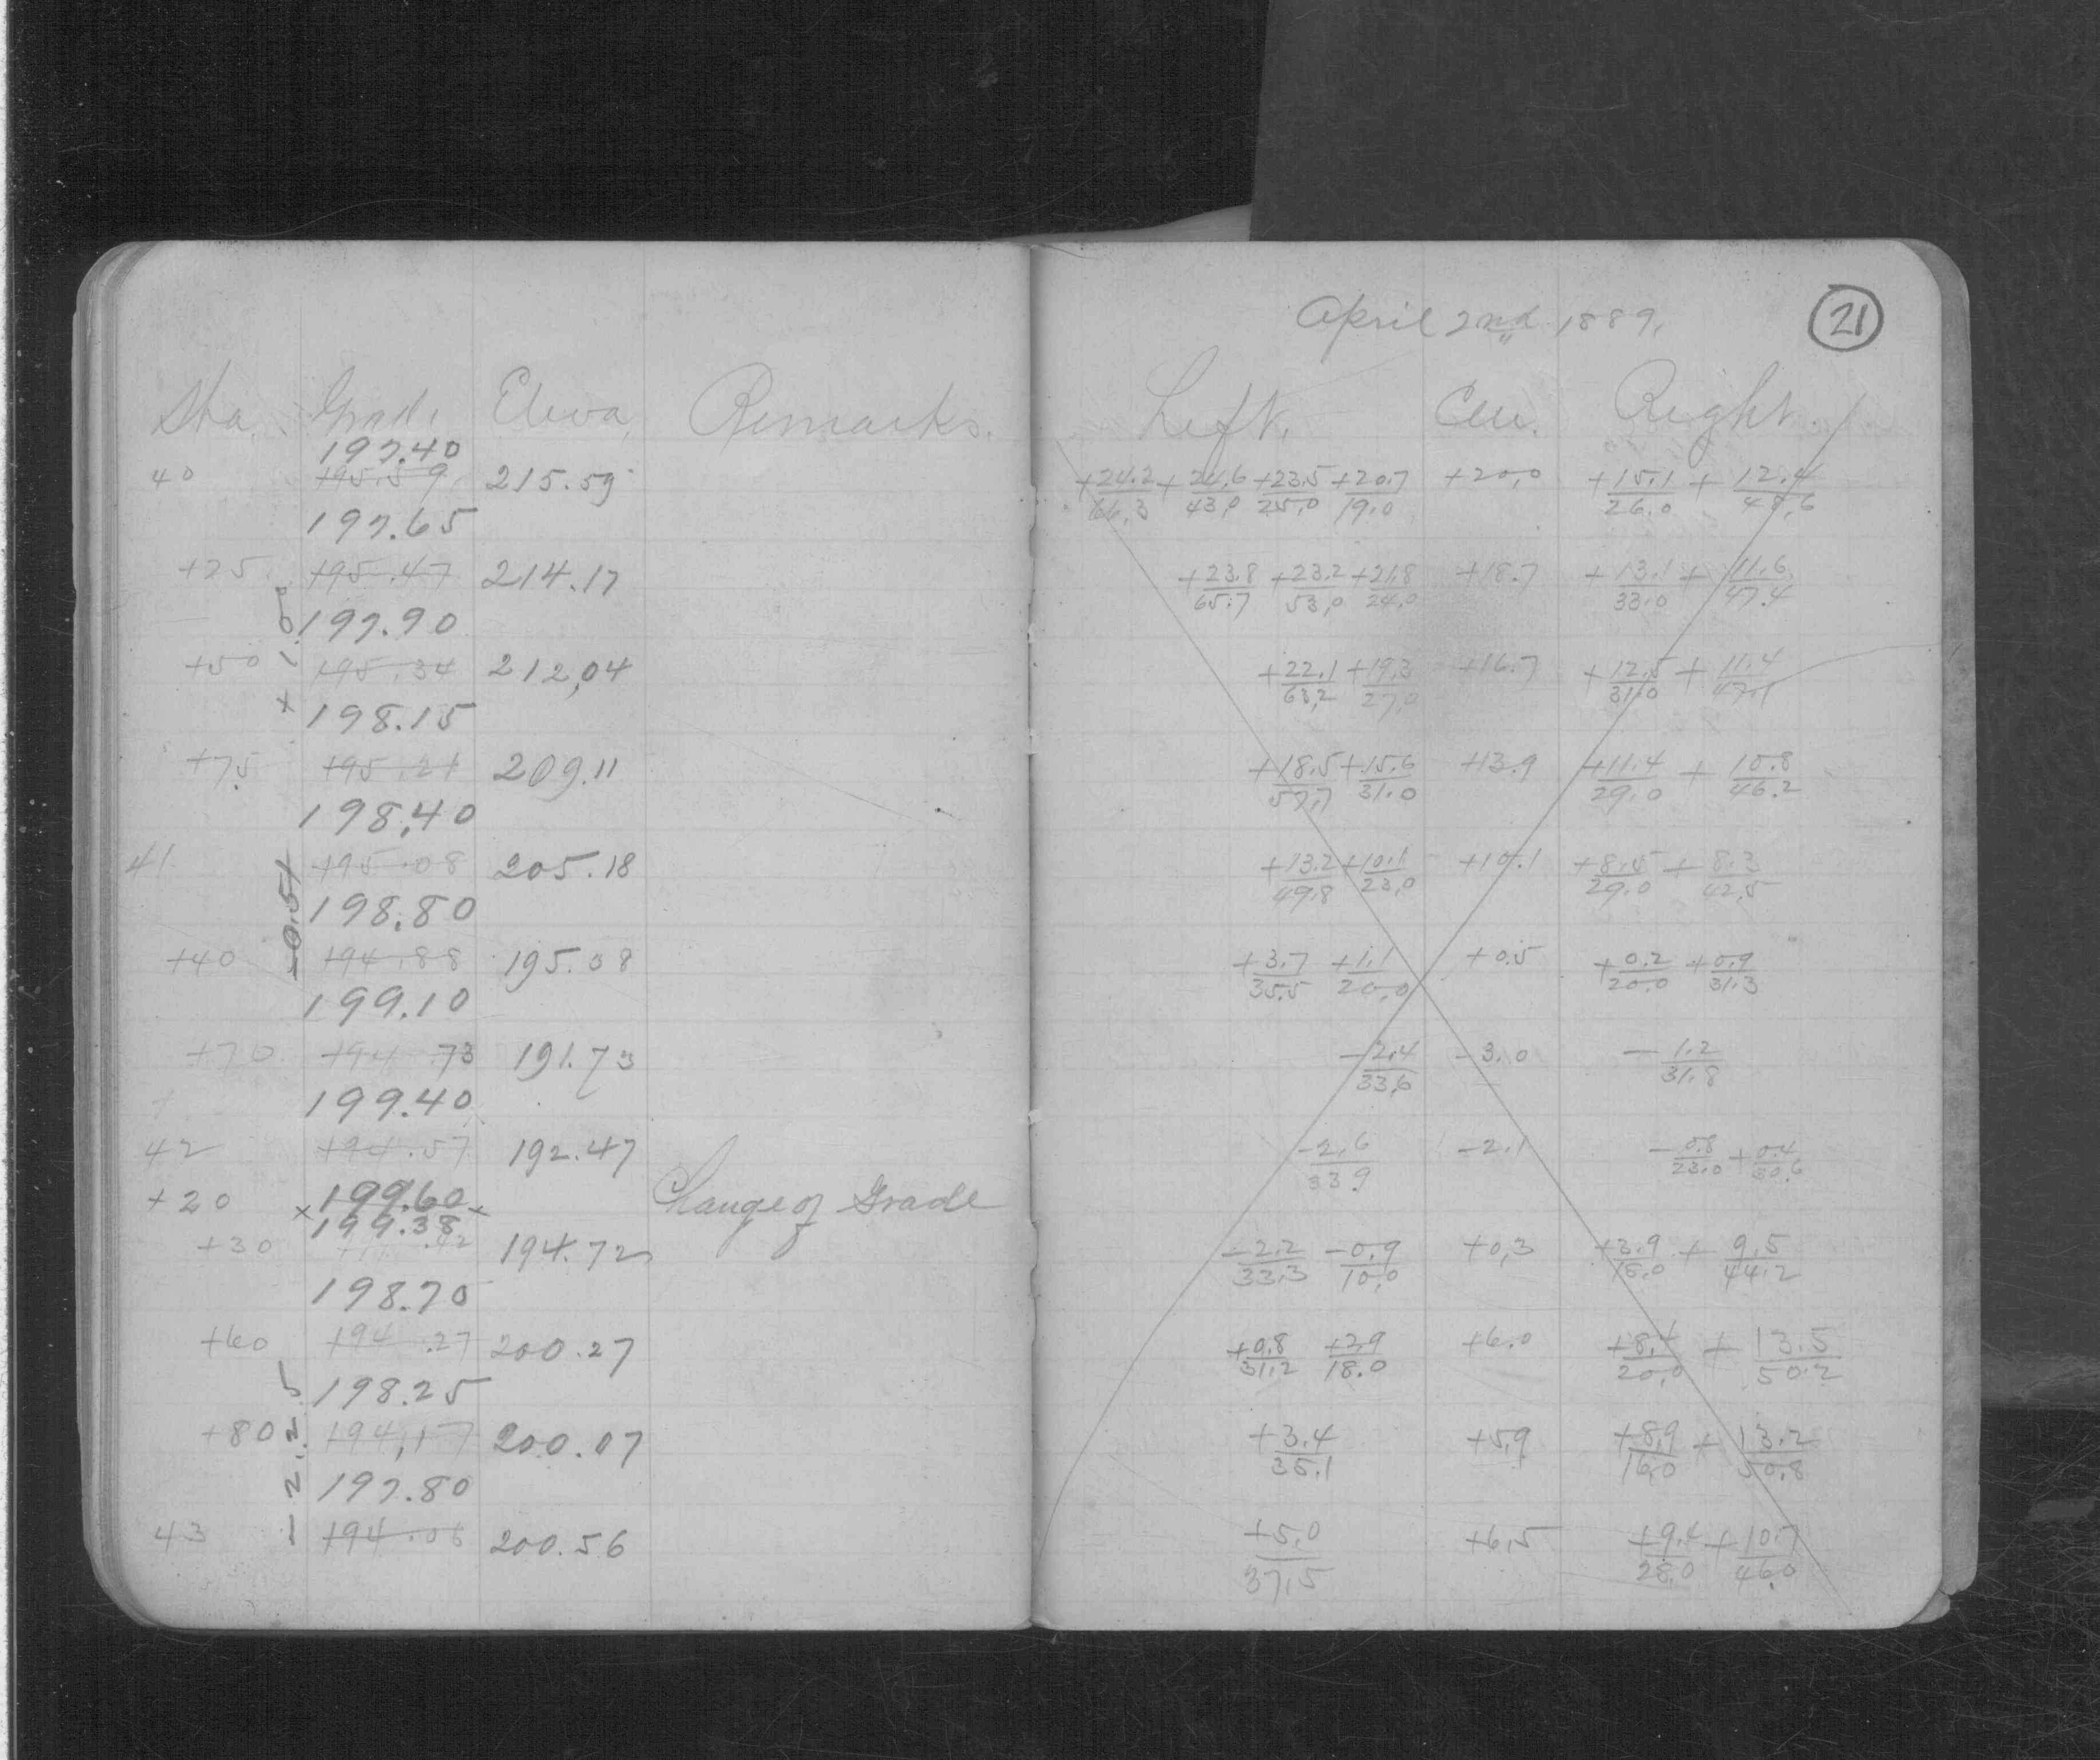 April 2nd 1889.
21
Sta. Grade Eleva. Remarks.
Left. Cen. Right.
197.40
40 195.59 215.59 +24.2/66.3 +24.6/43.0 +23.5/25.0 +20.7/19.0 +20.0 +15.1/26.0 +12.4/48.6
197.65
+25 195.47 214.17 +23.8/65.7 +23.2/53.0 +21.8/24.0 +18.7 +13.1/33.0 +11.6/47.4
197.90
+50 195.34 212.04 +22.1/63.2 +19.3/27.0 +16.7 +12.5/31.0 +11.4/47.1
+ 1.00
198.15
+75 195.21 209.11 +18.5/57.7 +15.6/31.0 +13.9 +11.4/29.0 +10.8/46.2
198.40
41 195.08 205.18 +13.2/49.8 +10.1/23.0 +10.1 +8.5/29.0 +8.3/42.5
-0.51
198.80
+40 194.88 195.38 +3.7/35.5 +1.1/20.0 +0.5 +0.2/20.0 +0.9/31.3
199.10
+70 194.73 191.73 -2.4/33.6 -3.0 -1.2/31.8
199.40
42 194.57 192.47 -2.6/33.9 -2.1 -0.8/23.0 +0.4/30.6
+20 x 199.60 x Change of Grade
199.38
+30 .42 194.72 -2.2/33.3 -0.9/10.0 +0.3 +3.9/18.0 +9.5/44.2
198.70
+60 194.27 200.27 +0.8/31.2 +3.9/18.0 +6.0 +8.4/20.0 +13.5/50.2
198.25
+80 194.17 200.07 +3.4/35.1 +5.9 +8.9/16.0 +13.2/50.8
- 2.25
197.80
43 194.06 200.56 +5.0/37.5 +6.5 +9.4/28.0 +10.7/46.0